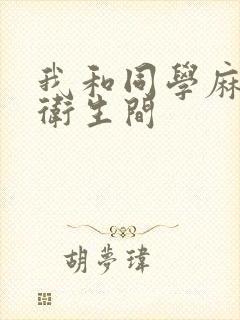 我和同學麻
衛生間
胡夢瑋